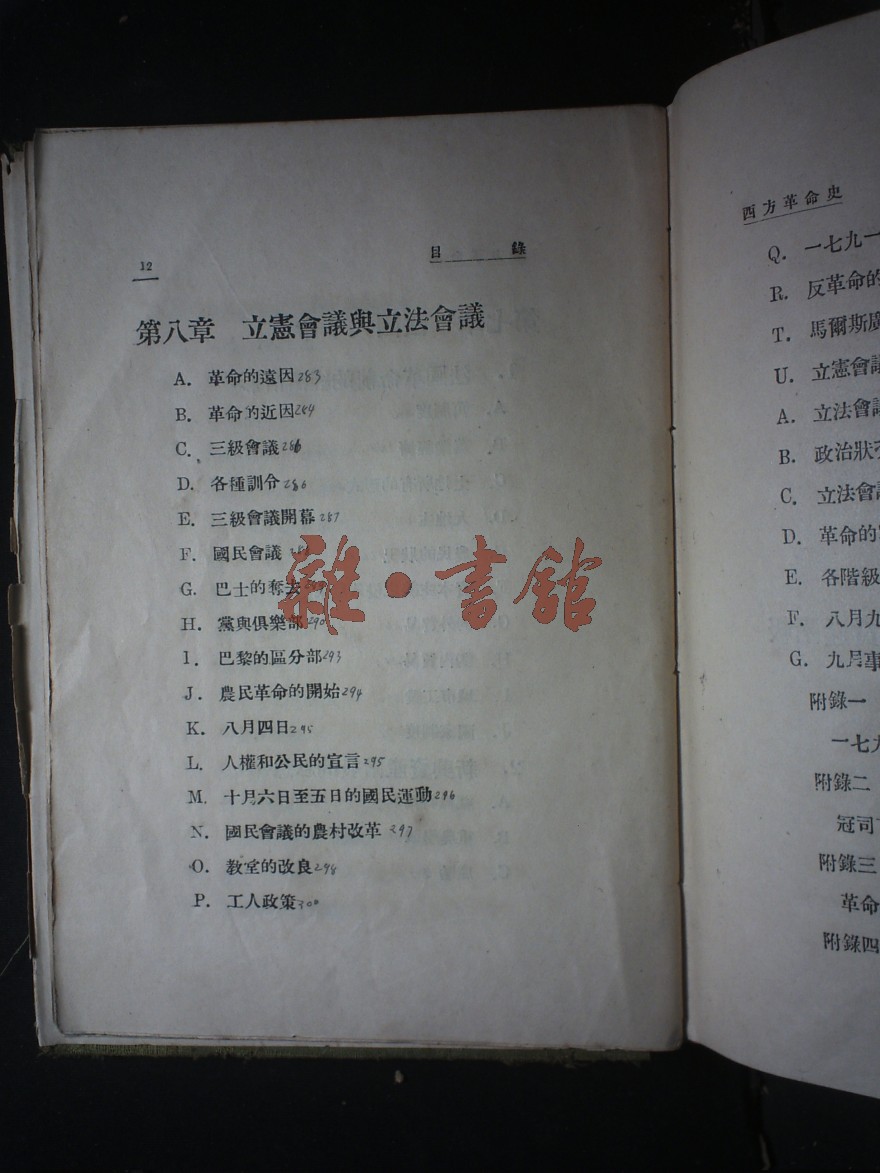 12
目錄
第八章 立憲會議與立法會議
A. 革命的遠因283
B. 革命的近因284
C. 三級會議286
D. 各種訓令286
E. 三級會議開幕287
F. 國民會議
G. 巴士的奪去
H. 黨與俱樂部290
I. 巴黎的區分部293
J. 農民革命的開始294
K. 八月四日295
L. 人權和公民的宣言295
M. 十月六日至五日的國民運動296
N. 國民會議的農村改革297
O. 教室的改良298
P. 工人政策300
雜·書館
西方革命史
Q. 一七九一
R. 反革命的
T. 馬爾斯廣
U. 立憲會議
A. 立法會
B. 政治狀
C. 立法會
D. 革命的
E. 各階級
F. 八月九
G. 九月事
附錄一
一七九
附錄二
冠司
附錄三
革命
附錄四